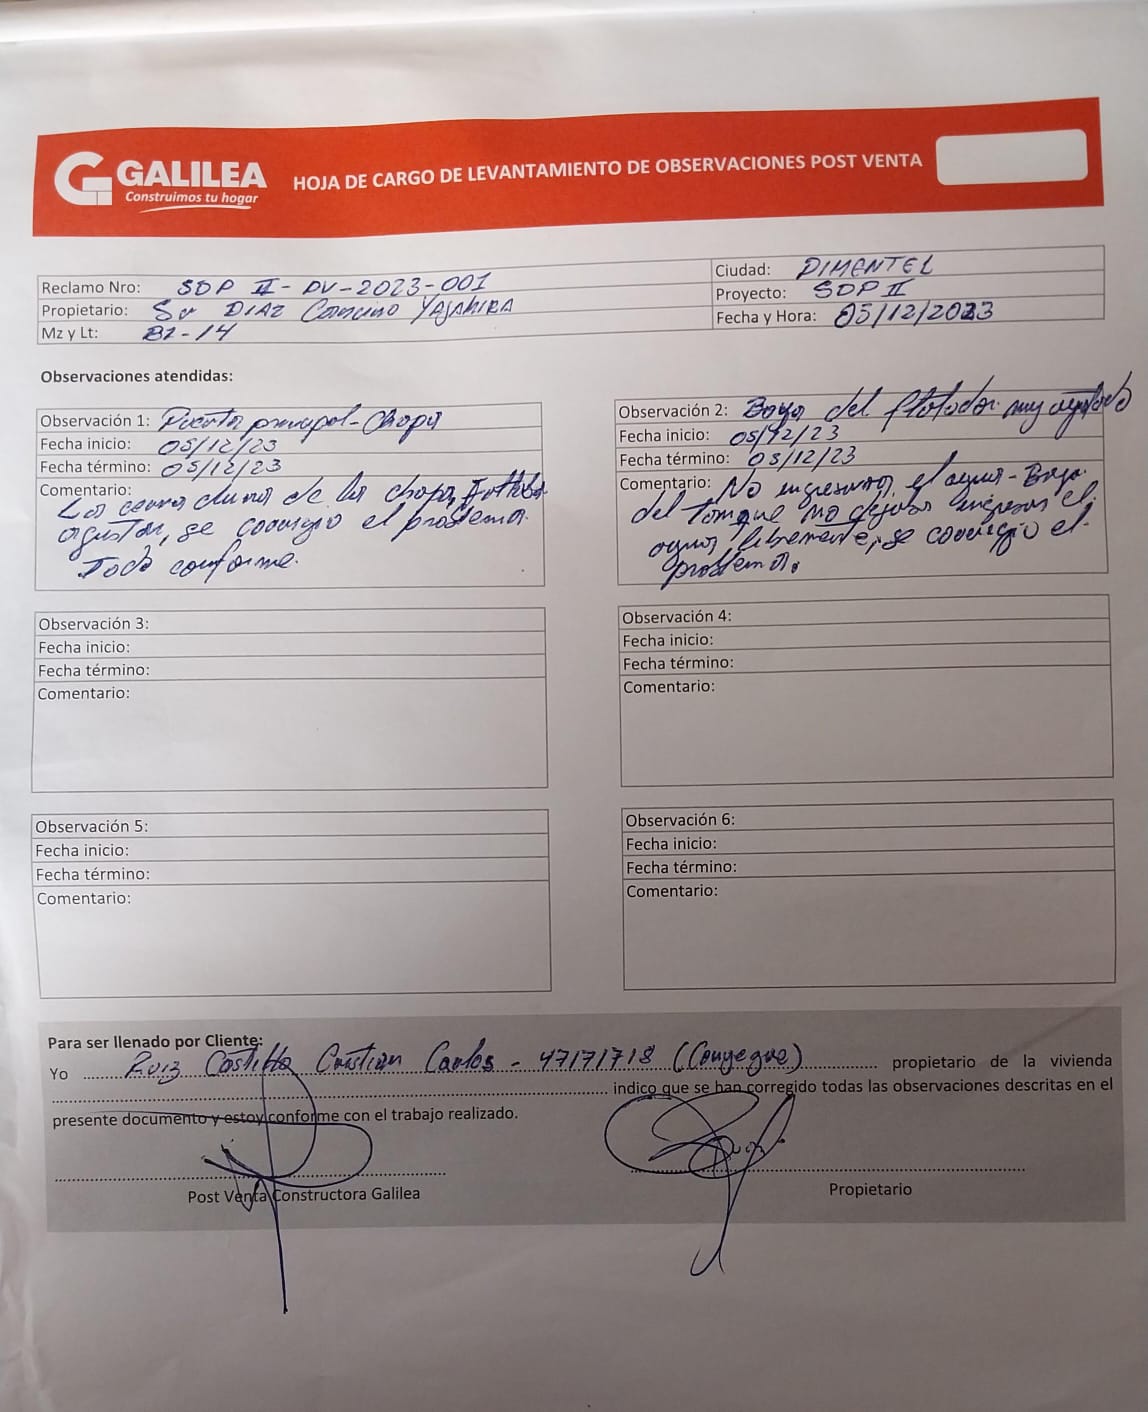 GALILEA
Construimos tu hogar
HOJA DE CARGO DE LEVANTAMIENTO DE OBSERVACIONES POST VENTA
Reclamo Nro: SDP II - DV - 2023 - 001
Ciudad: PIMENTEL
Propietario: DIAZ YAJAHIRA
Proyecto: SDP II
Mz y Lt: B1 - 14
Fecha y Hora: 05/12/2023
Observaciones atendidas:
Observación 1: Puerta principal - Chapa
Fecha inicio: 05/12/23
Fecha término: 05/12/23
Comentario:
de la chapa, faltaba
ajustar, se corrigio el problema.
Todo conforme.
Observación 2: Boya del flotador muy ajustado
Fecha inicio: 05/12/23
Fecha término: 05/12/23
Comentario: No ingresaba el agua - Boya
del Tanque no dejaba ingresar el
agua libremente, se corrigio el
problema.
Observación 3:
Fecha inicio:
Fecha término:
Comentario:
Observación 4:
Fecha inicio:
Fecha término:
Comentario:
Observación 5:
Fecha inicio:
Fecha término:
Comentario:
Observación 6:
Fecha inicio:
Fecha término:
Comentario:
Para ser llenado por Cliente:
Yo Ruiz Castillo Cristian Carlos - 47171718 (Conyegue) propietario de la vivienda
indico que se han corregido todas las observaciones descritas en el
presente documento y estoy conforme con el trabajo realizado.
Post Venta Constructora Galilea
Propietario